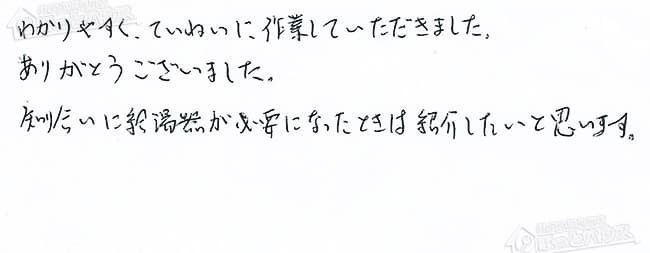 わかりやすく、ていねいに作業していただきました。
ありがとうございました。
知り合いに給湯器が必要になったときは紹介したいと思います。